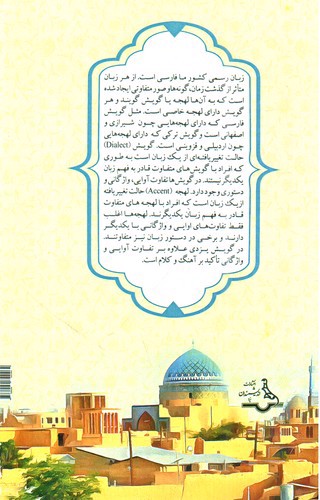 زبان رسمی کشور ما فارسی است. از هر زبان
متأثر از گذشت زمان، گونه‌ها و صور متفاوتی ایجاد شده
است که به آن‌ها لهجه یا گویش گویند و هر
گویش دارای لهجه خاصی است. مثل گویش
فارسی که دارای لهجه‌هایی چون شیرازی و
اصفهانی است و گویش ترکی که دارای لهجه‌هایی
چون اردبیلی و قزوینی است. گویش (Dialect)
حالت تغییریافته‌ای از یک زبان است به طوری
که افراد با گویش‌های متفاوت قادر به فهم زبان
یکدیگر نیستند. در گویش‌ها تفاوت آوایی، واژگانی و
دستوری وجود دارد. لهجه (Accent) حالت تغییریافته
از یک زبان است که افراد با لهجه های متفاوت
قادر به فهم زبان یکدیگرند. لهجه‌ها اغلب
فقط تفاوت‌های اوایی و واژگانی با یکدیگر
دارند و برخی در دستور زبان نیز متفاوتند.
در گویش یزدی علاوه بر تفاوت آوایی و
واژگانی تأکید بر آهنگ و کلام است.